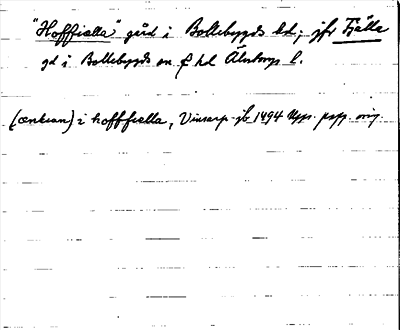 "Hoffiælla" gård i Bollebygds hd; jfr Fjälla
gd i Bollebygds sn o hd Älvsborgs l.
(ænkian) i hoffiælla, Vinsarp jb 1494 Upps. papp. orig.